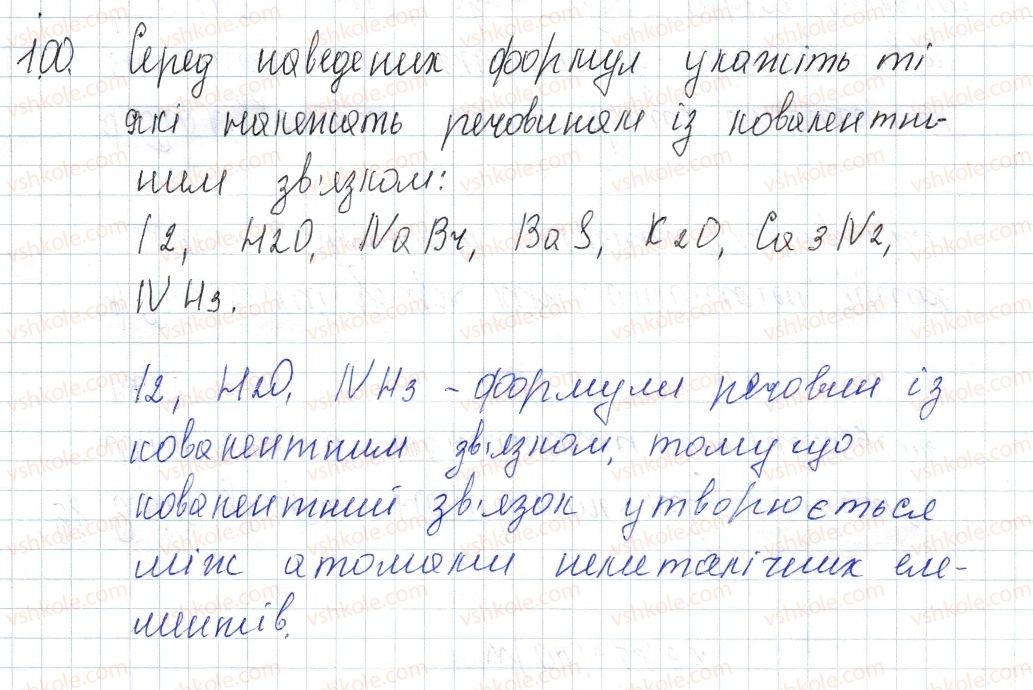 100. Серед наведених формул укажіть ті
які належать речовинам із ковалентни-
ним зв'язком:
I2, H2O, NaBr, BaS, K2O, Ca3N2,
NH3.
I2, H2O, NH3 - формули речовин із
ковалентним зв'язком, тому що
ковалентний зв'язок утворюється
між атомами неметалічних еле-
ментів.